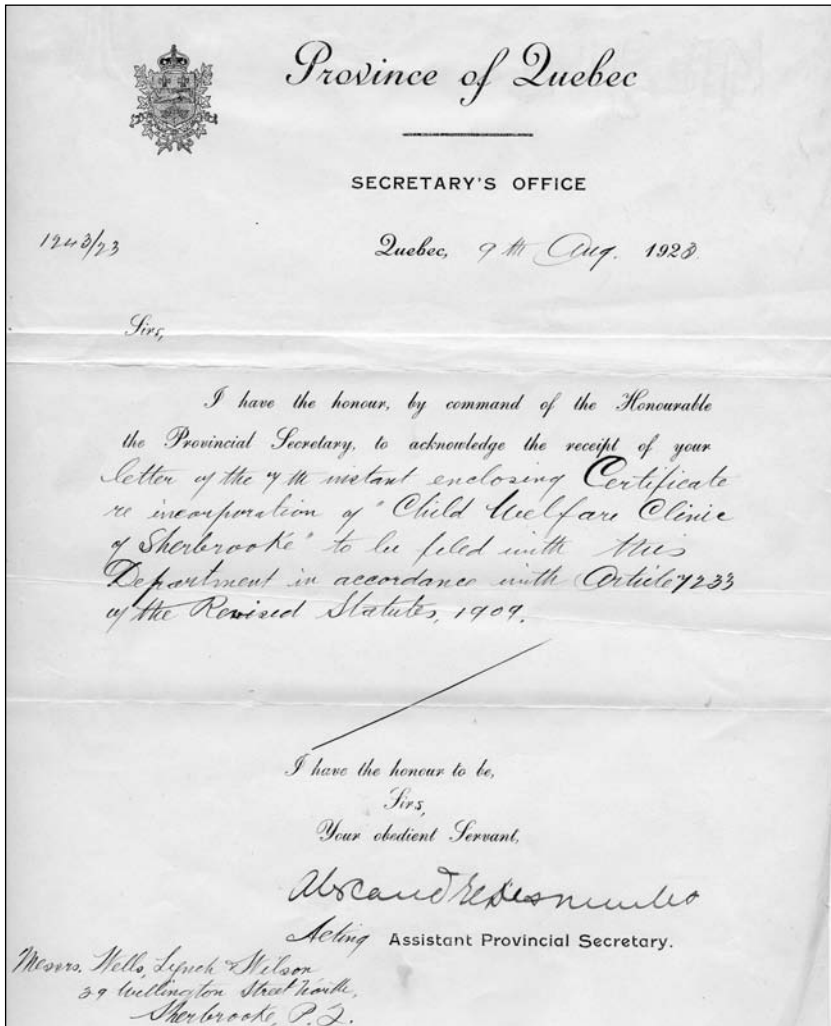 Province of Quebec
SECRETARY'S OFFICE
1243/23
Quebec, 9th Aug. 1923.
Sirs,
I have the honour, by command of the Honourable
the Provincial Secretary, to acknowledge the receipt of your
letter of the 7th instant enclosing Certificate
re incorporation of "Child Welfare Clinic
of Sherbrooke" to be filed with this
Department in accordance with Article 7233
of the Revised Statutes, 1909.
I have the honour to be,
Sirs,
Your obedient Servant,
Alexandre Desmeules
Acting Assistant Provincial Secretary.
Messrs. Wells, Lynch & Wilson
39 Wellington Street North,
Sherbrooke, P.Q.